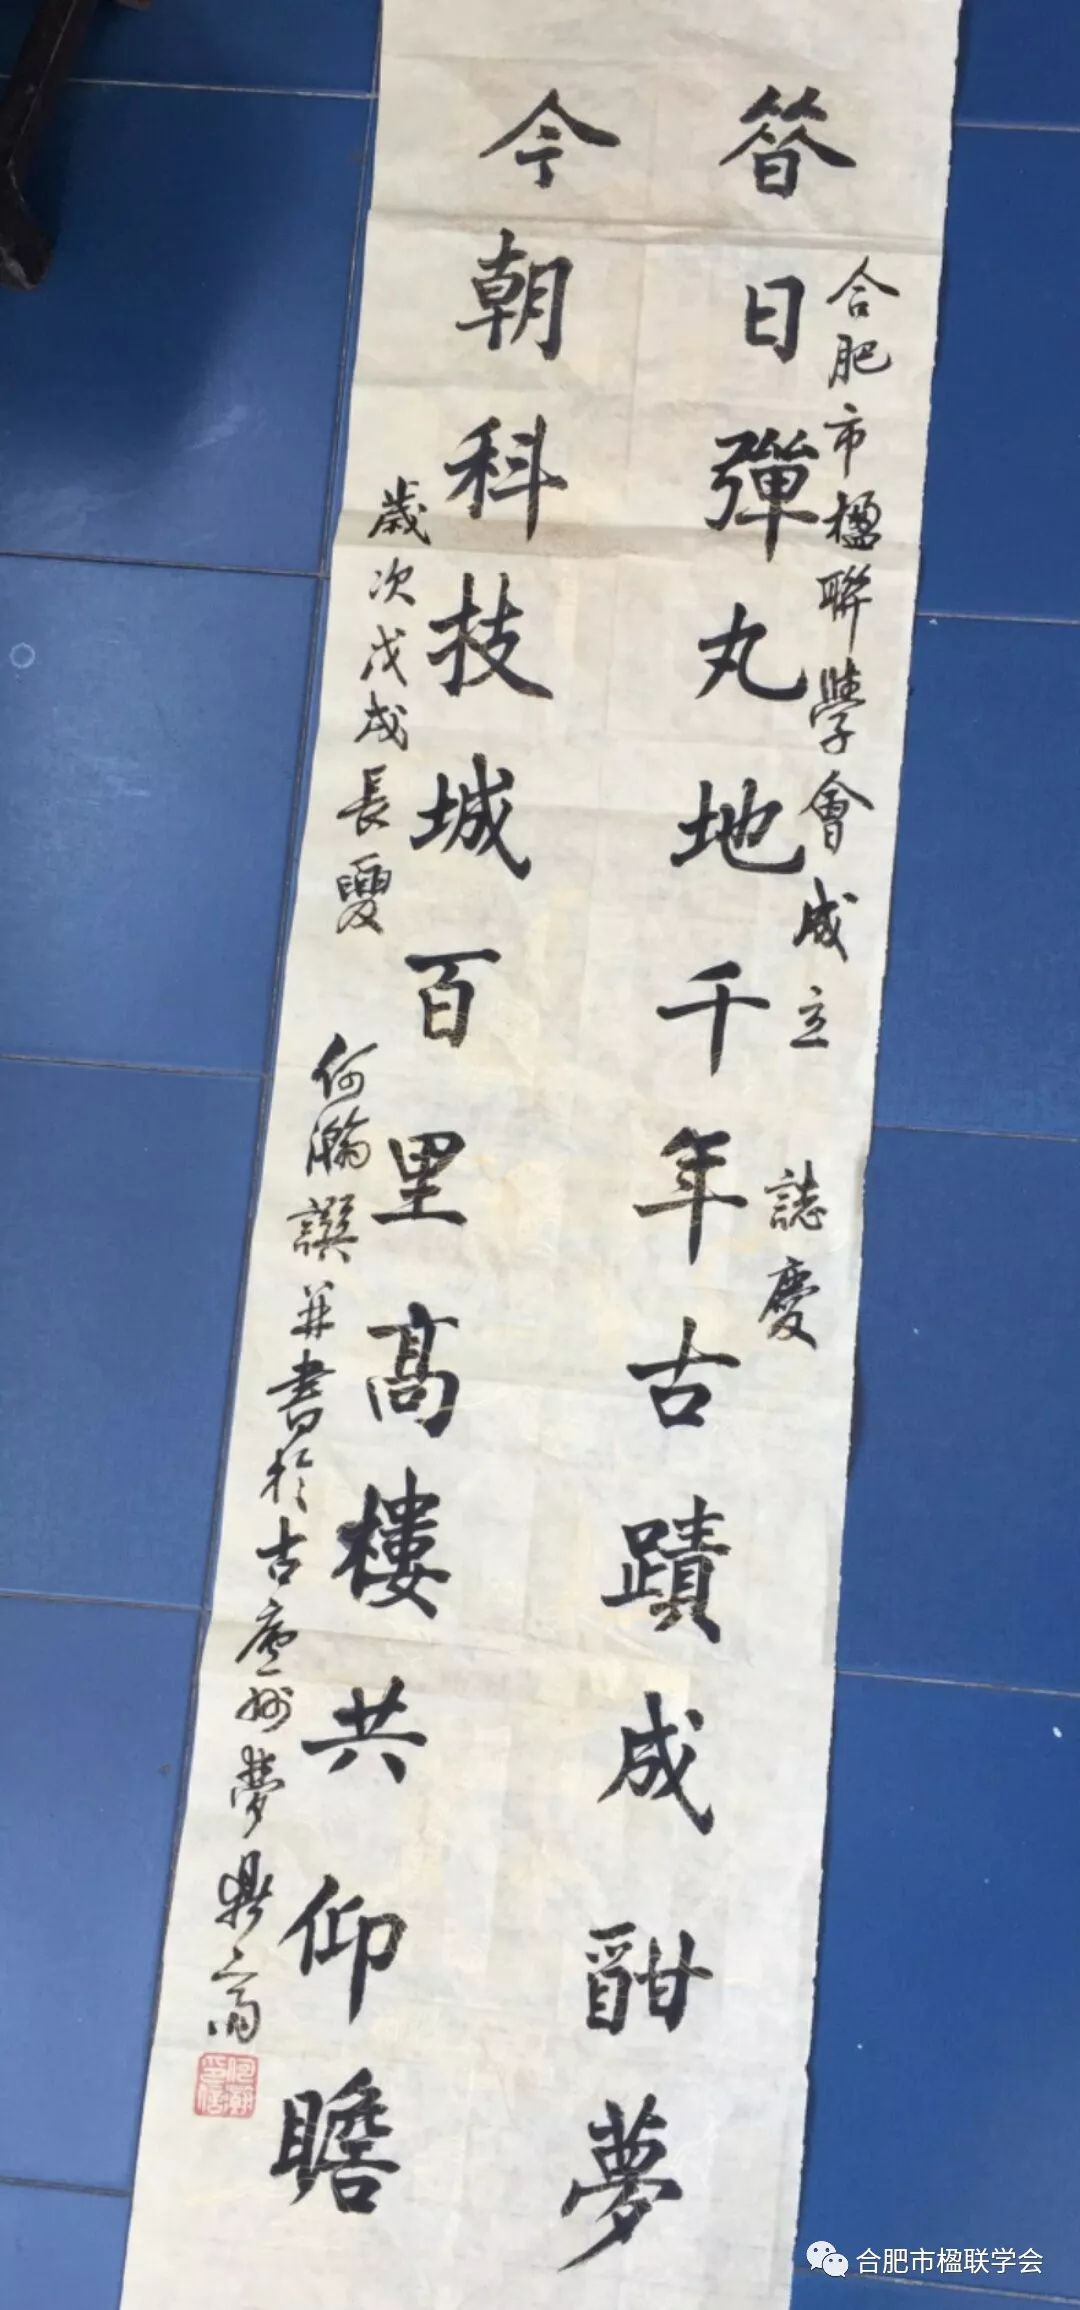 合肥市楹聯學會成立 誌慶
昔日彈丸地千年古蹟成酣夢
今朝科技城百里高樓共仰瞻
歲次戊戌長夏 何瀚譔并書於古廬州夢鼎齋
何瀚印信
合肥市楹联学会